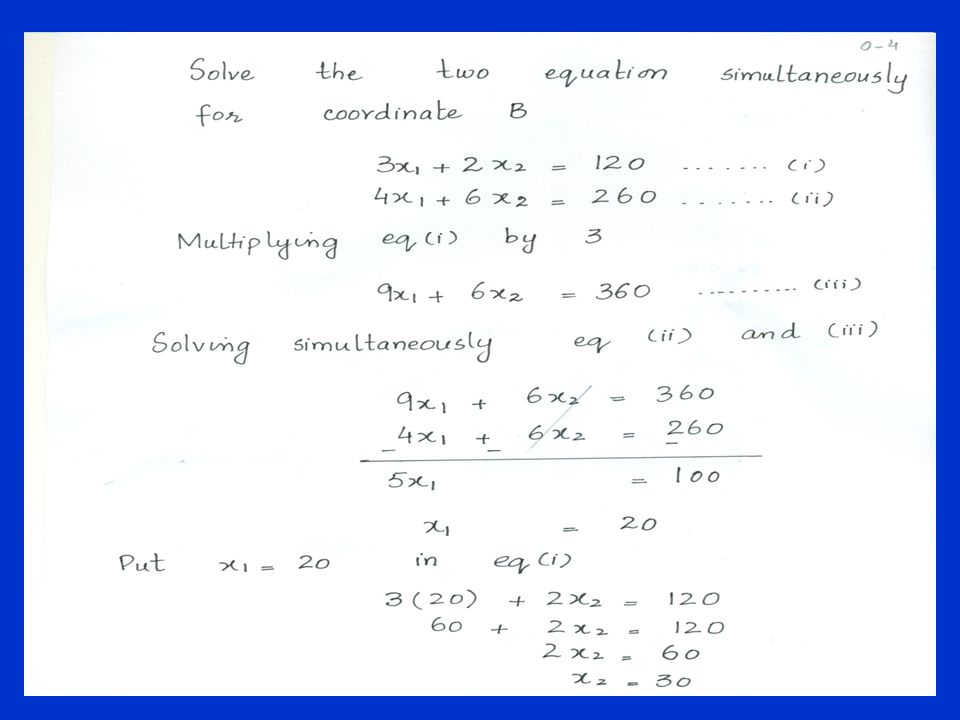 0-4
Solve the two equation simultaneously
for coordinate B
3x₁ + 2x₂ = 120 ........ (i)
4x₁ + 6x₂ = 260 ........ (ii)
Multiplying eq(i) by 3
9x₁ + 6x₂ = 360 .......... (iii)
Solving simultaneously eq (ii) and (iii)
9x₁ + 6x₂ = 360
4x₁ + 6x₂ = 260
− − −
5x₁ = 100
x₁ = 20
Put x₁ = 20 in eq(i)
3(20) + 2x₂ = 120
60 + 2x₂ = 120
2x₂ = 60
x₂ = 30